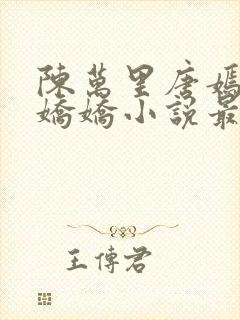 陳萬里唐嫣
嬌嬌小說最
王傳君